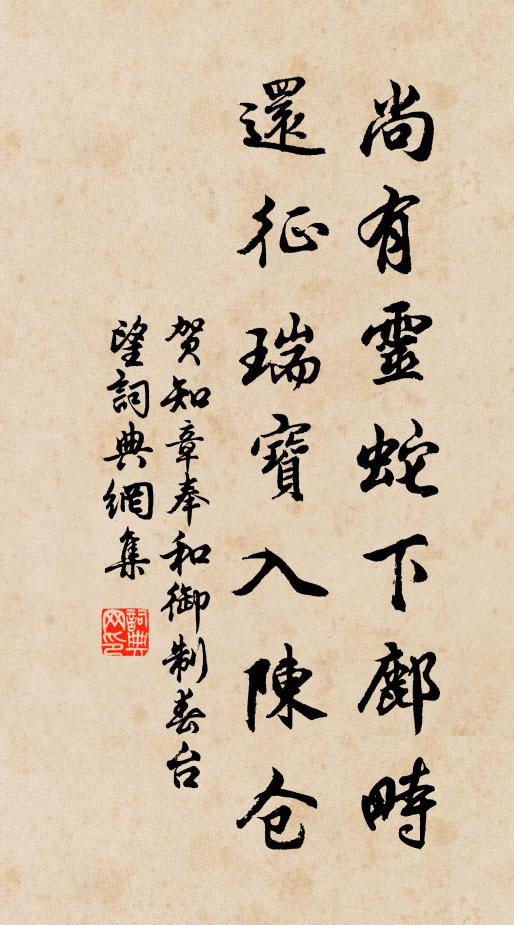 尚有靈蛇下鄜畤
還征瑞寶入陳仓
贺知章奉和御制春台
望詞典網集
詞典
网印